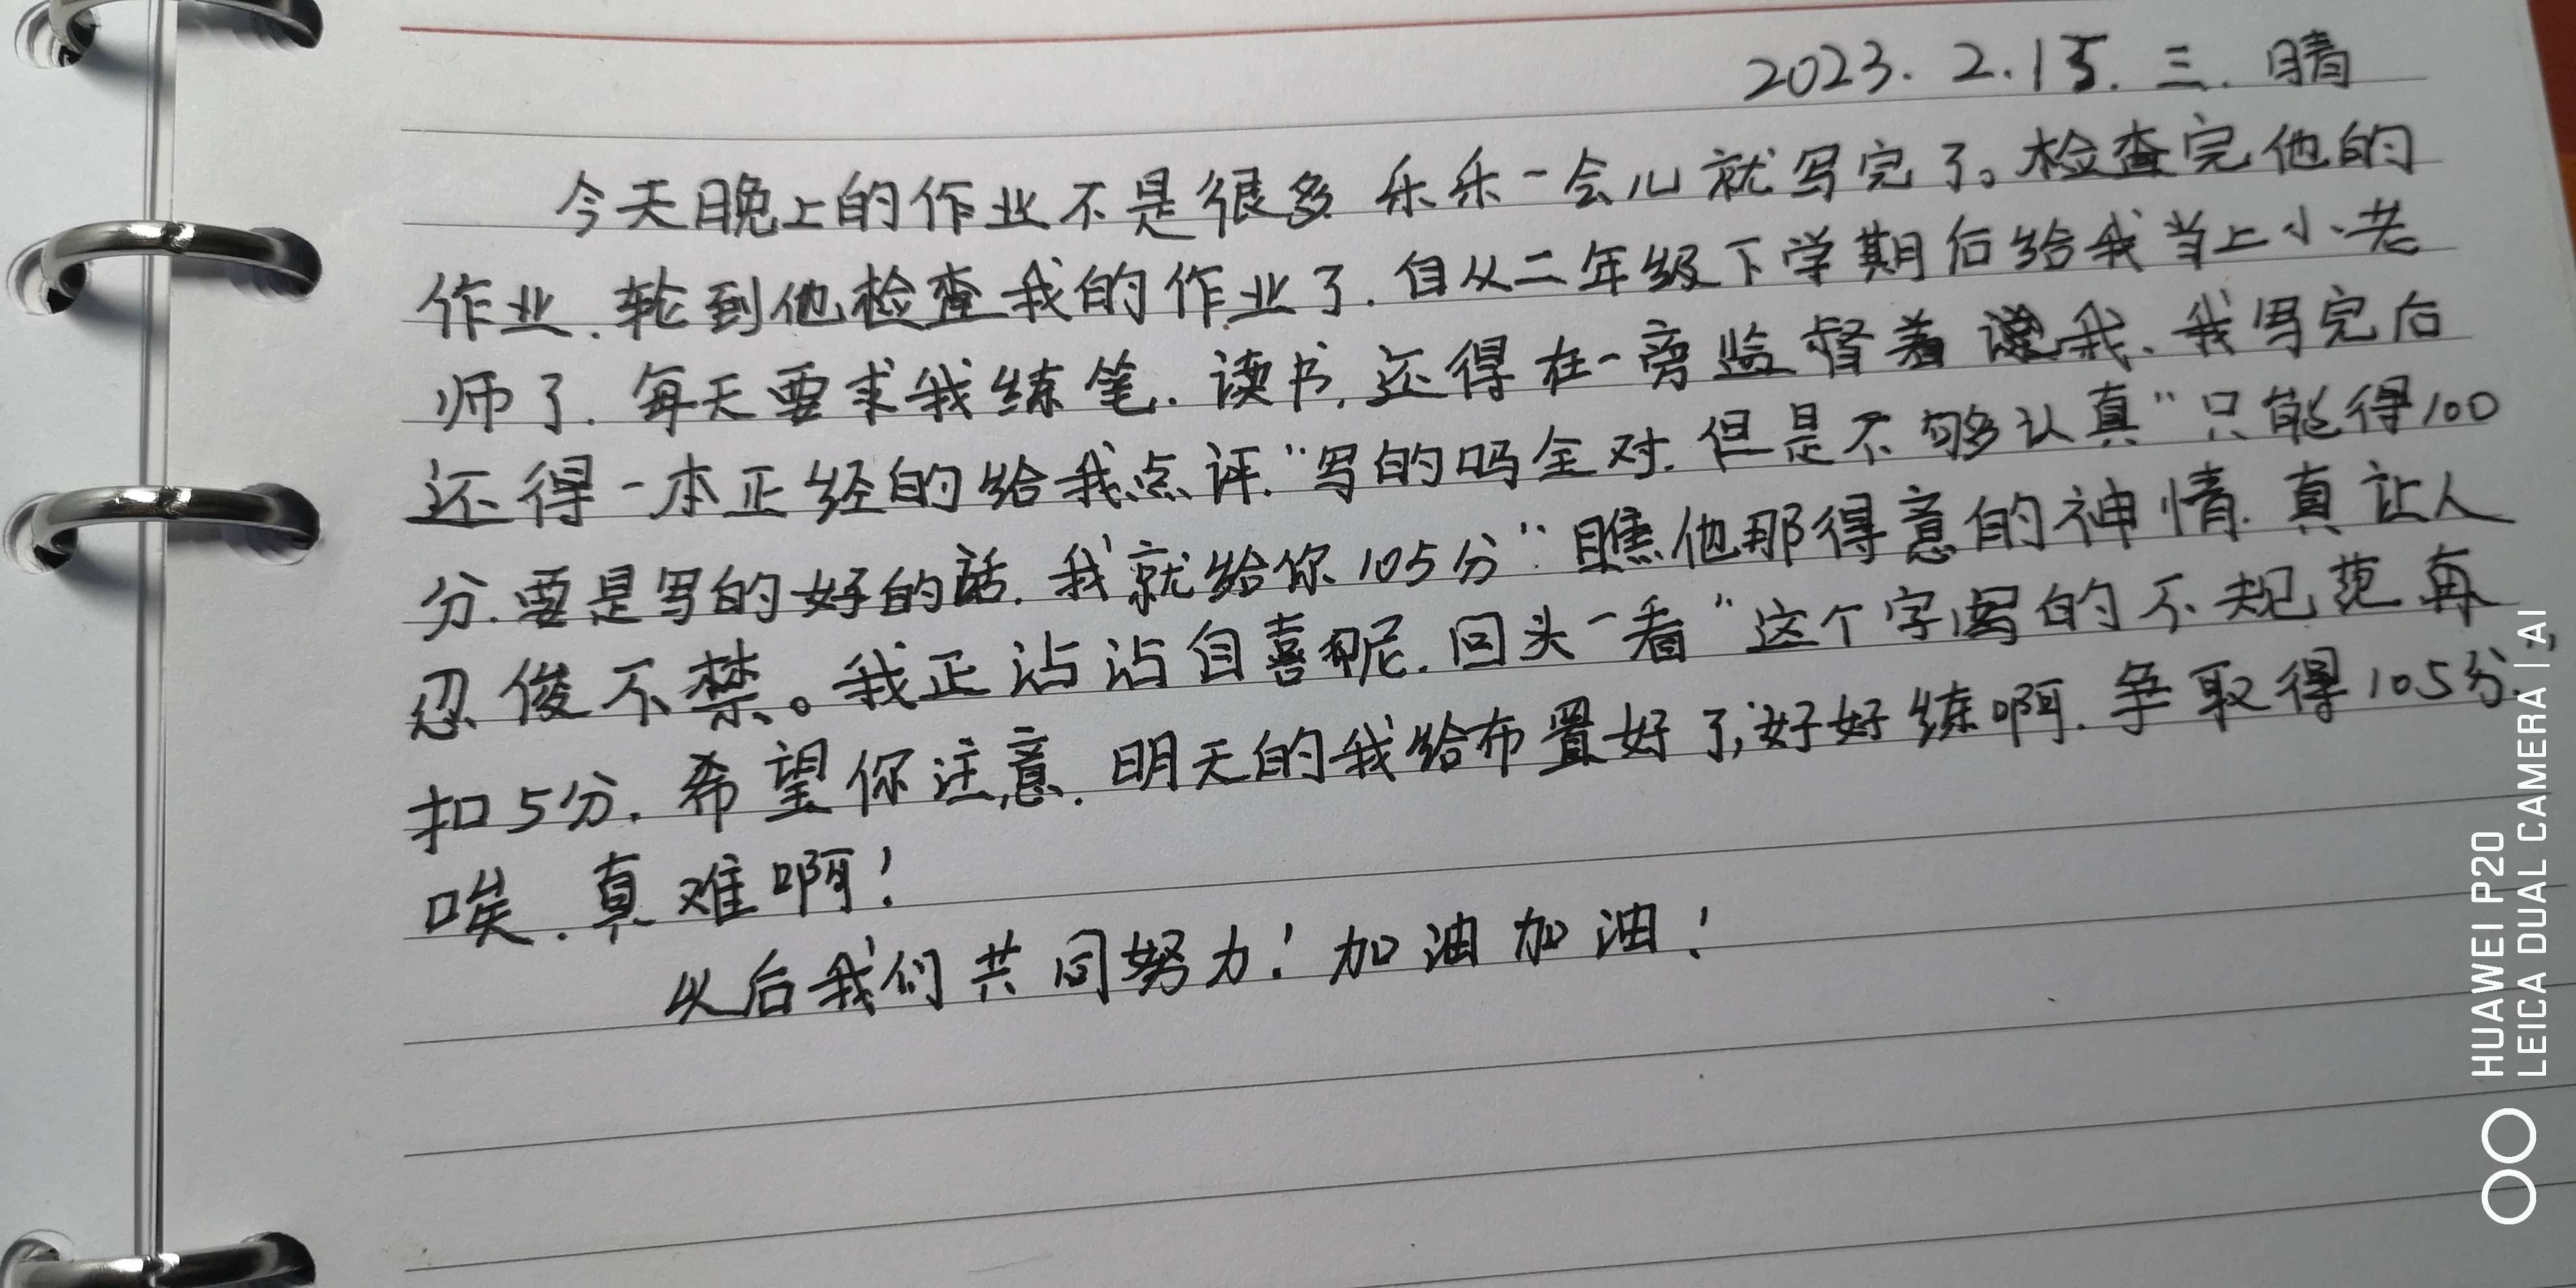 2023.2.15.三.晴
今天晚上的作业不是很多 乐乐一会儿就写完了。检查完他的
作业.轮到他检查我的作业了.自从二年级下学期后给我当上小老
师了.每天要求我练笔.读书.还得在一旁监督着我、我写完后
还得一本正经的给我点评."写的吗全对.但是不够认真"只能得100
分.要是写的好的话.我就给你105分".瞧他那得意的神情.真让人
忍俊不禁。我正沾沾自喜呢.回头一看"这个字写的不规范再
扣5分.希望你注意.明天的我给布置好了,好好练啊.争取得105分."
唉.真难啊!
以后我们共同努力!加油加油!
HUAWEI P20
LEICA DUAL CAMERA | AI